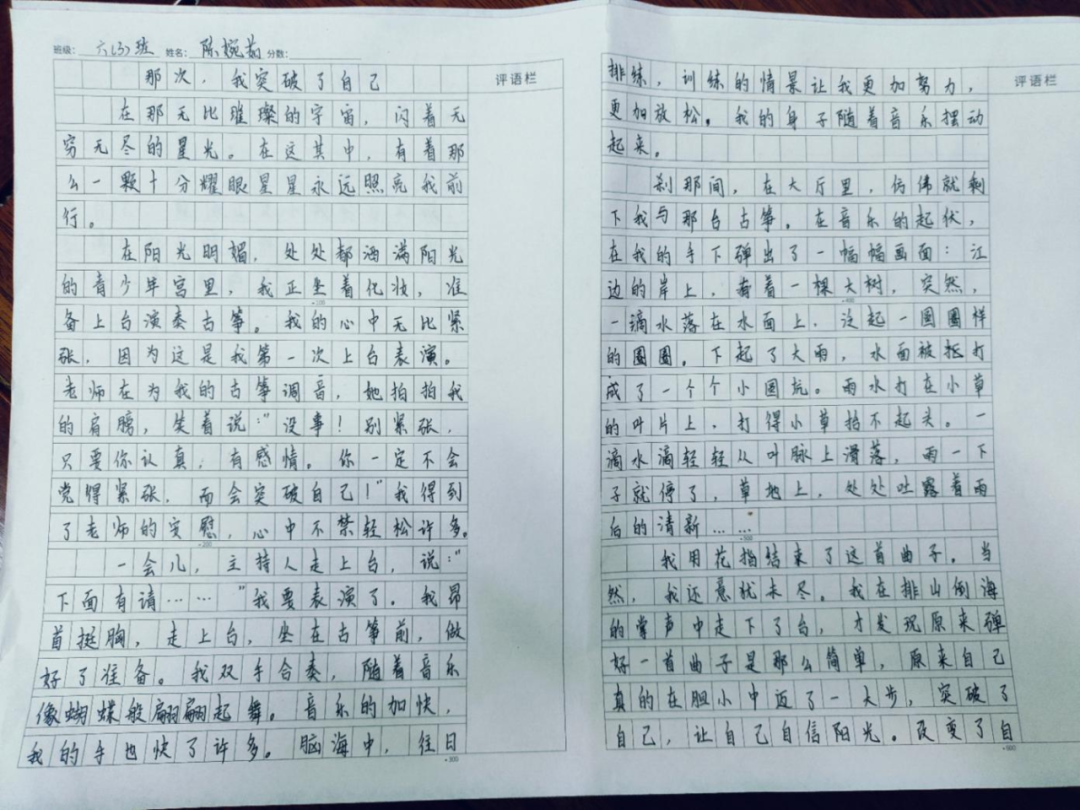 班级: 六(3)班 姓名: 陈婉菊 分数:
评语栏
那次,我突破了自己
在那无比璀璨的宇宙,闪着无
穷无尽的星光。在这其中,有着那
么一颗十分耀眼星星永远照亮我前
行。
在阳光明媚,处处都洒满阳光
的青少年宫里,我正坐着化妆,准
备上台演奏古筝。我的心中无比紧
张,因为这是我第一次上台表演。
老师在为我的古筝调音,她拍拍我
的肩膀,笑着说:“没事!别紧张,
只要你认真,有感情。你一定不会
觉得紧张,而会突破自己!”我得到
了老师的安慰,心中不禁轻松许多。
一会儿,主持人走上台,说:“
下面有请……”我要表演了。我昂
首挺胸,走上台,坐在古筝前,做
好了准备。我双手合奏,随着音乐
像蝴蝶般翩翩起舞。音乐的加快,
我的手也快了许多。脑海中,往日
评语栏
排练,训练的情景让我更加努力,
更加放松。我的身子随着音乐摆动
起来。
刹那间,在大厅里,仿佛就剩
下我与那台古筝。在音乐的起伏,
在我的手下弹出了一幅幅画面:江
边的岸上,有着一棵大树,突然,
一滴水落在水面上,泛起一圈圈样
的圈圈。下起了大雨,水面被抵打
成了一个个小圆坑。雨水打在小草
的叶片上,打得小草抬不起头。一
滴水滴轻轻从叶脉上滑落,雨一下
子就停了,草地上,处处吐露着雨
后的清新……
我用花指结束了这首曲子。当
然,我还意犹未尽。我在排山倒海
的掌声中走下了台,才发现原来弹
好一首曲子是那么简单,原来自己
真的在胆小中迈了一大步,突破了
自己,让自己自信阳光。改变了自